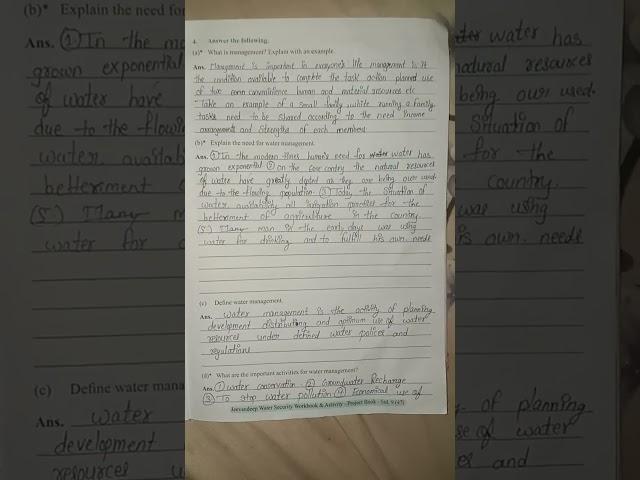 4. Answer the following.
(a)* What is management? Explain with an example.
Ans. Management is important in everyone's life management is it
the condition available to complete the task action planed use
of two human and material resources etc
Take an example of a small family while running a family
tasks need to be shared according to the need income
arrangements and strengths of each members
(b)* Explain the need for water management.
Ans. ① In the modern times human's need for water has
grown exponential ② on the contry the natural resources
of water have greatly as they are being over used
due to the flowing population ③ Today the situation of
water availability all irrigation for the
betterment of agriculture in the country.
(5.) Many man in the early days was using
water for drinking and to fulfill his own needs
(c) Define water management.
Ans. water management is the activity of planning
development distributing and optimum use of water
resources under defined water polices and
regulations
(d)* What are the important activities for water management?
Ans. ① water conservation ② Groundwater Recharge
③ To stop water pollution ④ Economical use of
Jeevandeep Water Security Workbook & Activity - Project Book - Std. 9 (47)